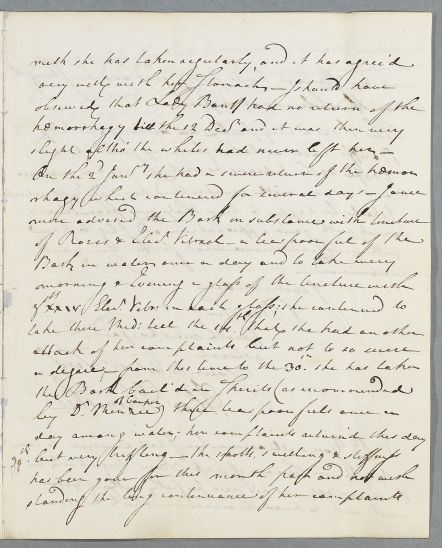 milk she has taken regularly, and it has agree'd
very well with her Stomach – I should have
observed that Lady Banff had no return of the
hæmorrhagy till the 12 Decr and it was then very
slight altho' the whites had never left her –
On the 2d Janry she had a severe return of the hæmor
rhagy which continued for several days – I once
more advised the Bark in substance with tincture
of Roses & Elixr Vitriol – a teaspoonful of the
Bark in water once a day and to take every
morning & Evening a glass of the tincture with
gtts XXIV Elixr Vitri: in each glass; she continued to
take these Meds: till the that she had an other
attack of her complaints but not to so severe
a degree, from this time to the 30th she has taken
the Bark in Spirits (as recommended
by Dr Menzies of Cowper) three teaspoonfuls once a
day among water; her complaints return'd this day
30th but very triffling – the spotts, swelling & stiffness
has been gone for this month past and not with
standing the long continuance of her complaints